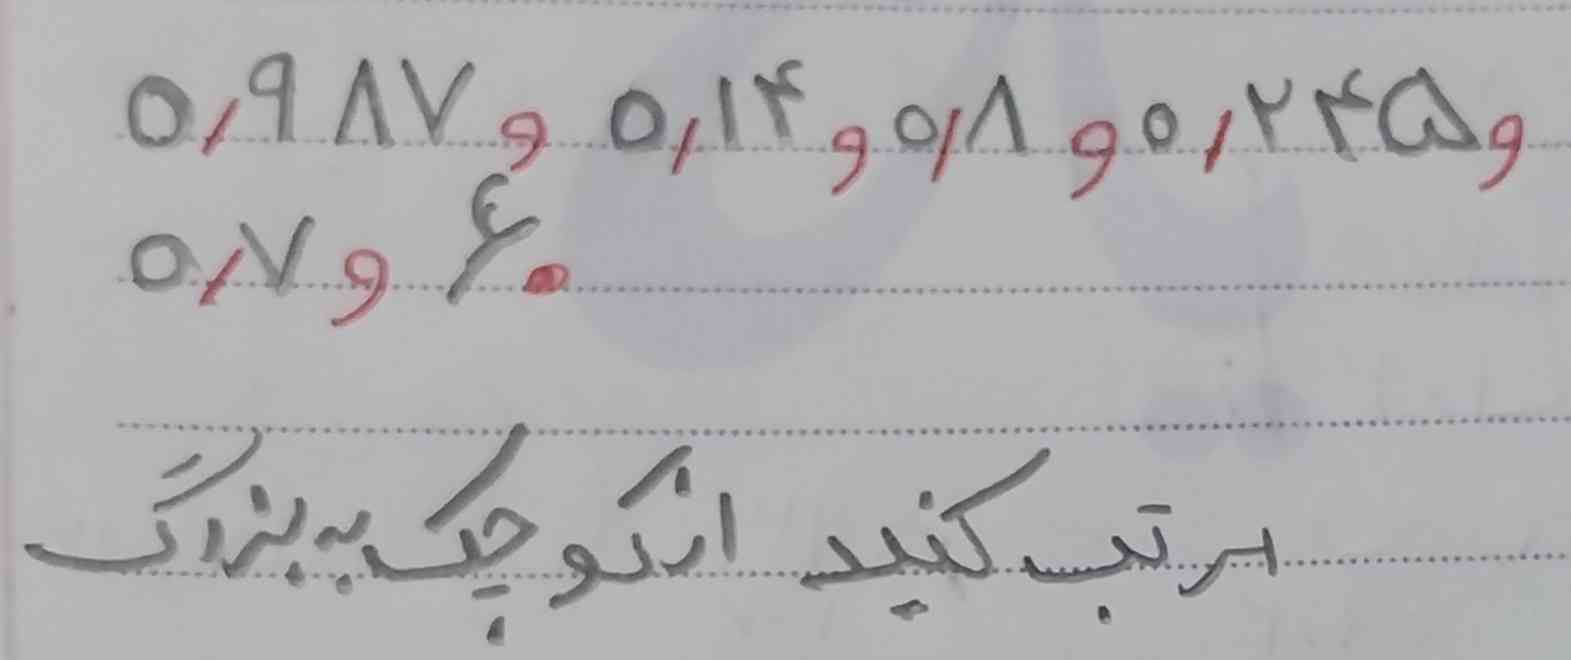 ۰٫۹۸۷ و ۰٫۱۴ و ۰٫۸ و ۰٫۲۴۵ و
۰٫۷ و ۶.
مرتب کنید از کوچک به بزرگ